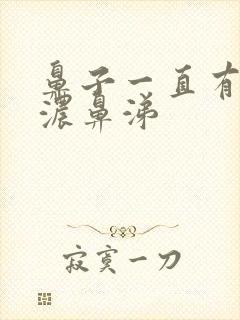 鼻子一直有
浓鼻涕
寂寞一刀